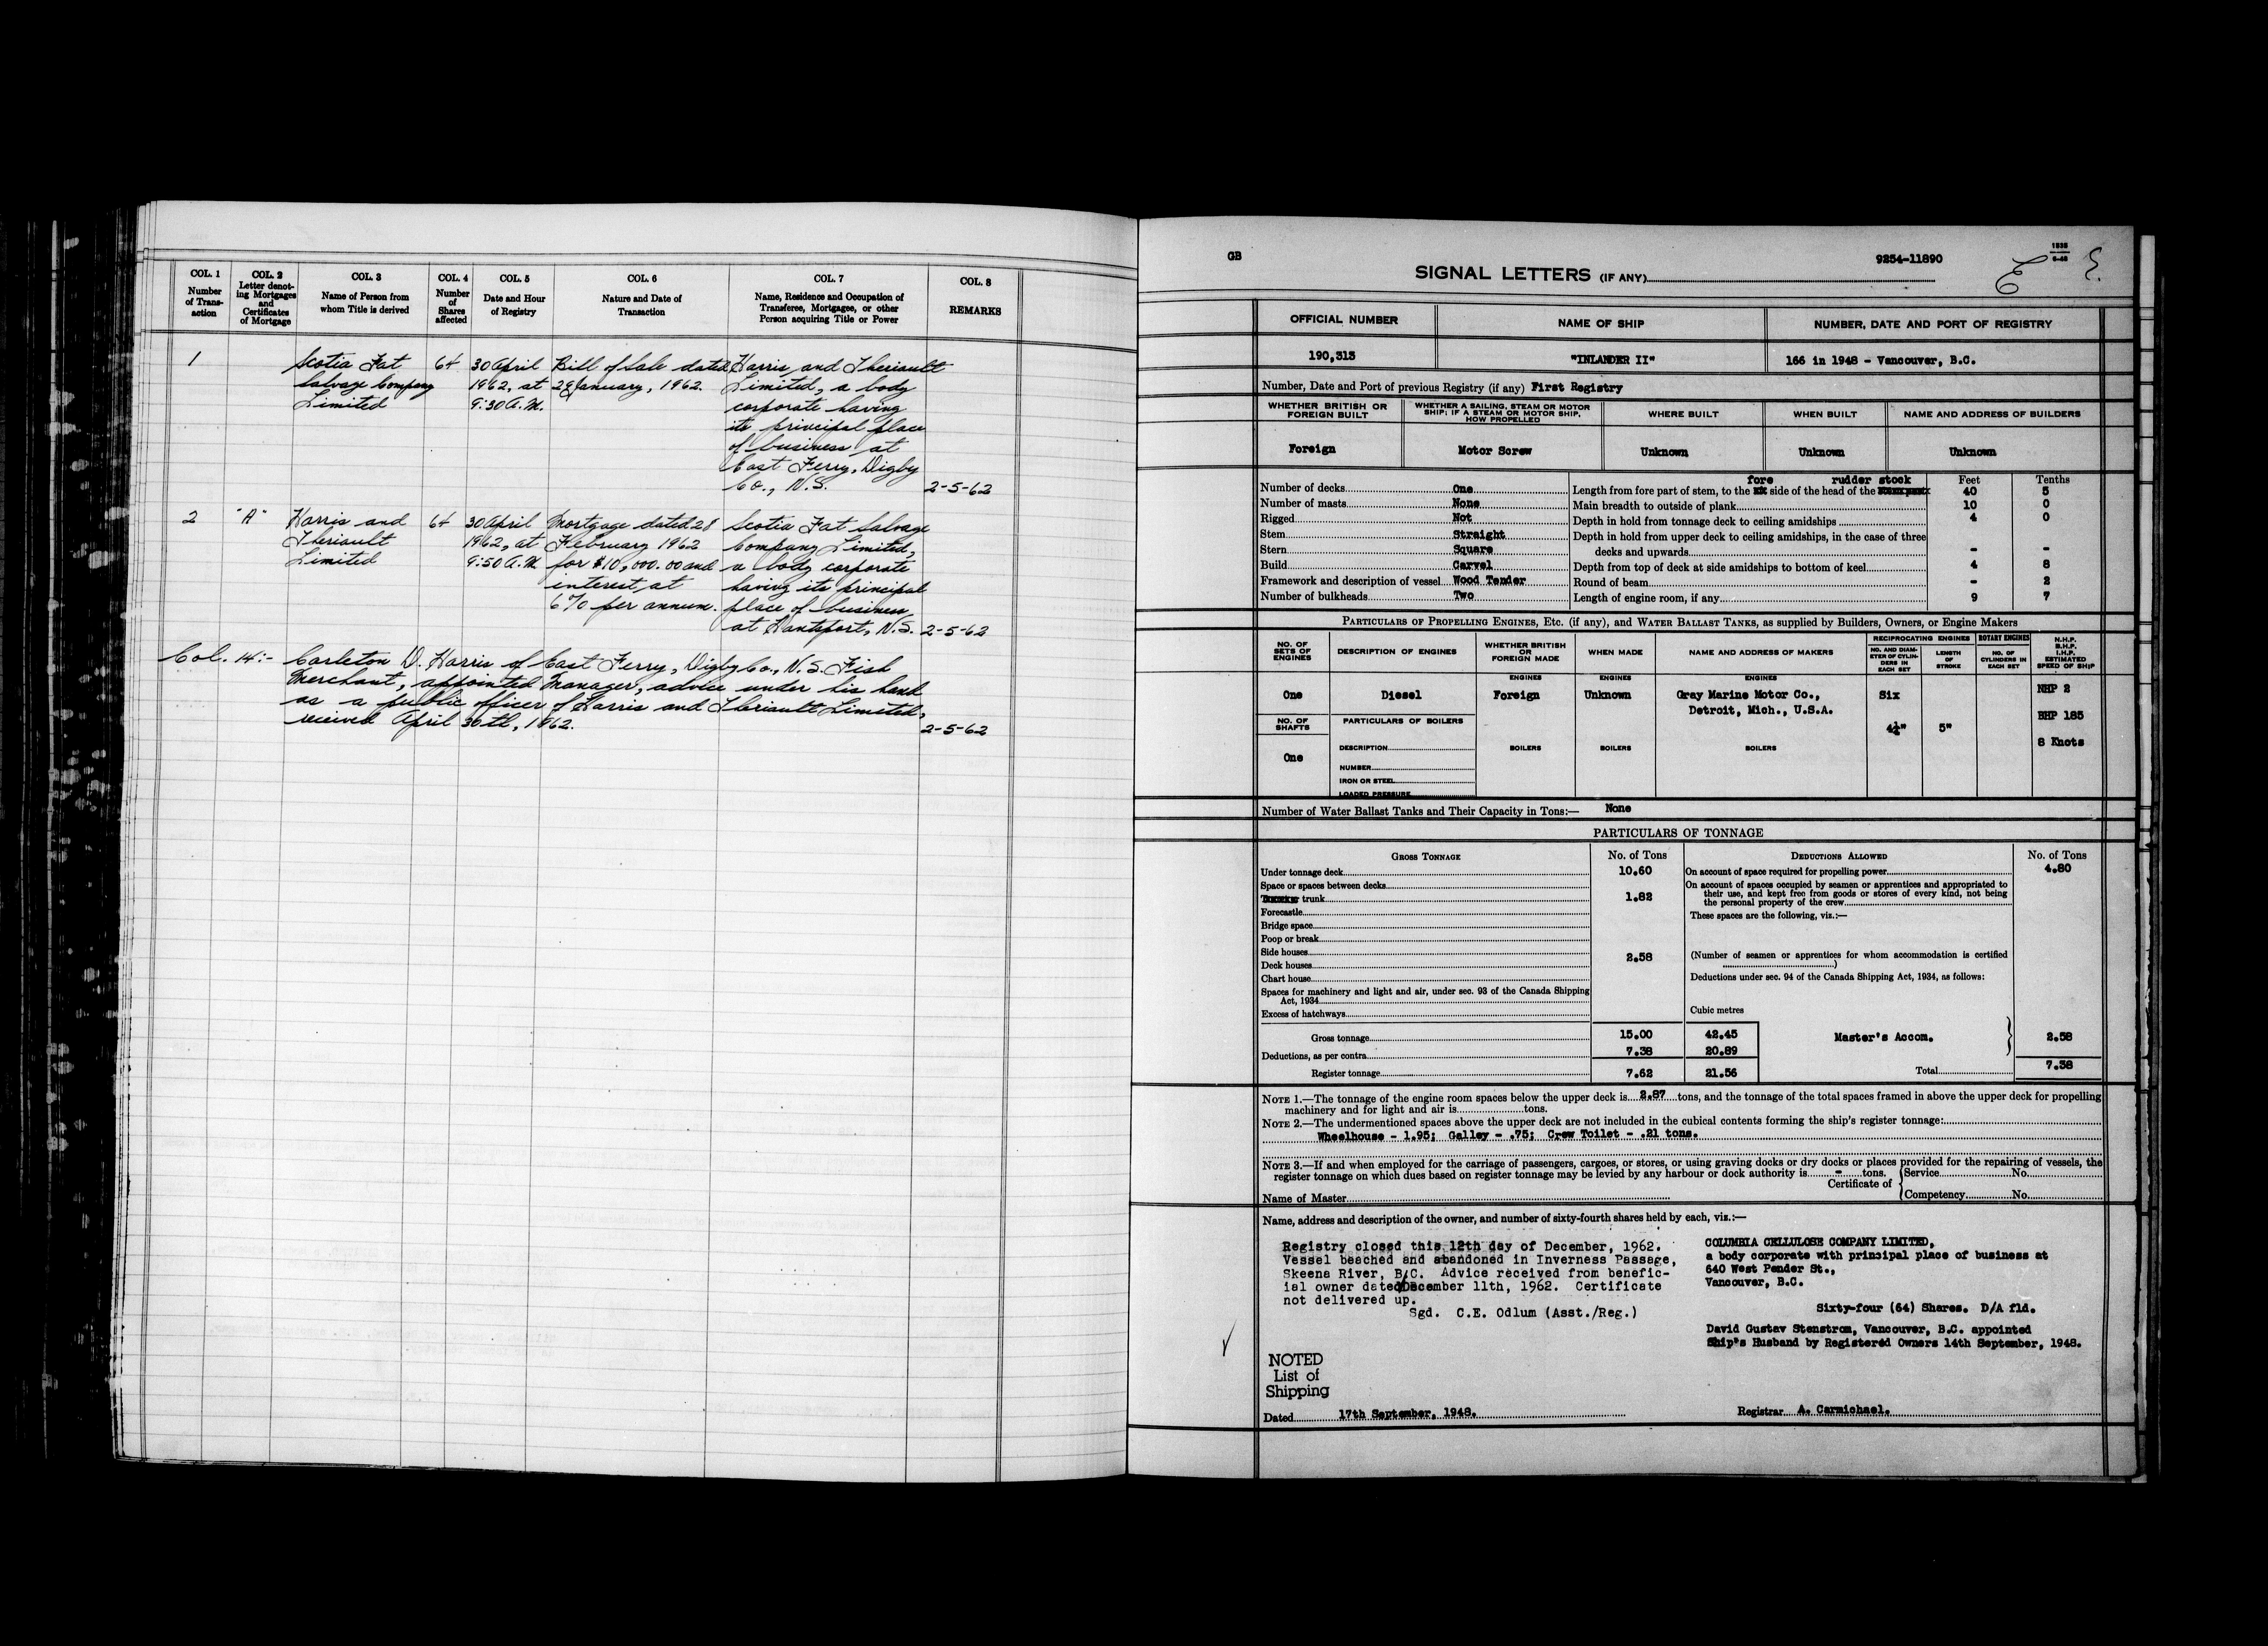 COL. 1 COL. 2 COL. 3 COL. 4 COL. 5 COL. 6 COL. 7 COL. 8
Number of Transaction
Letter denoting Mortgages and Certificates of Mortgage
Name of Person from whom Title is derived
Number of Shares affected
Date and Hour of Registry
Nature and Date of Transaction
Name, Residence and Occupation of Transferee, Mortgagee, or other Person acquiring Title or Power
REMARKS
1
Scotia Fat
Salvage Company
Limited
64
30 April
1962, at
9:30 A.M.
Bill of Sale dated
29 January, 1962
Harris and Theriault
Limited, a body
corporate having
its principal place
of business at
East Ferry, Digby
Co., N.S.
2-5-62
2
"A"
Harris and
Theriault
Limited
64
30 April
1962, at
9:50 A.M.
Mortgage dated 28
February 1962
for $10,000.00 and
interest at
6% per annum.
Scotia Fat Salvage
Company Limited,
a body corporate
having its principal
place of business
at Hantsport, N.S.
2-5-62
Col. 14:- Carleton D. Harris of East Ferry, Digby Co., N.S. Fish
Merchant, appointed Manager, advice under his hand
as a public officer of Harris and Theriault Limited,
received April 30th, 1962.
2-5-62
GB
9254-11890
SIGNAL LETTERS (IF ANY)
E
OFFICIAL NUMBER NAME OF SHIP NUMBER, DATE AND PORT OF REGISTRY
190,313 "INLANDER II" 166 in 1948 - Vancouver, B.C.
Number, Date and Port of previous Registry (if any) First Registry
WHETHER BRITISH OR FOREIGN BUILT
WHETHER A SAILING, STEAM OR MOTOR SHIP; IF A STEAM OR MOTOR SHIP, HOW PROPELLED
WHERE BUILT
WHEN BUILT
NAME AND ADDRESS OF BUILDERS
Foreign Motor Screw Unknown Unknown Unknown
Number of decks One
Number of masts None
Rigged Not
Stem Straight
Stern Square
Build Carvel
Framework and description of vessel Wood Tender
Number of bulkheads Two
fore rudder stock Feet Tenths
Length from fore part of stem, to the side of the head of the 40 5
Main breadth to outside of plank 10 0
Depth in hold from tonnage deck to ceiling amidships 4 0
Depth in hold from upper deck to ceiling amidships, in the case of three
decks and upwards - -
Depth from top of deck at side amidships to bottom of keel 4 8
Round of beam - 2
Length of engine room, if any 9 7
PARTICULARS OF PROPELLING ENGINES, ETC. (if any), and WATER BALLAST TANKS, as supplied by Builders, Owners, or Engine Makers
NO. OF SETS OF ENGINES
DESCRIPTION OF ENGINES
WHETHER BRITISH OR FOREIGN MADE
WHEN MADE
NAME AND ADDRESS OF MAKERS
RECIPROCATING ENGINES
NO. AND DIAMETER OF CYLINDERS IN EACH SET
LENGTH OF STROKE
ROTARY ENGINES
NO. OF CYLINDERS IN EACH SET
N.H.P. B.H.P. I.H.P. ESTIMATED SPEED OF SHIP
ENGINES ENGINES ENGINES
One Diesel Foreign Unknown Gray Marine Motor Co., Six NHP 2
Detroit, Mich., U.S.A.
BHP 185
NO. OF SHAFTS PARTICULARS OF BOILERS
4¼" 5"
8 Knots
One
DESCRIPTION BOILERS BOILERS BOILERS
NUMBER
IRON OR STEEL
LOADED PRESSURE
Number of Water Ballast Tanks and Their Capacity in Tons:— None
PARTICULARS OF TONNAGE
GROSS TONNAGE No. of Tons DEDUCTIONS ALLOWED No. of Tons
Under tonnage deck 10.60
Space or spaces between decks
trunk 1.82
Forecastle
Bridge space
Poop or break
Side houses
Deck houses 2.58
Chart house
Spaces for machinery and light and air, under sec. 93 of the Canada Shipping
Act, 1934
Excess of hatchways
On account of space required for propelling power 4.80
On account of spaces occupied by seamen or apprentices and appropriated to
their use, and kept free from goods or stores of every kind, not being
the personal property of the crew
These spaces are the following, viz.:—
(Number of seamen or apprentices for whom accommodation is certified
)
Deductions under sec. 94 of the Canada Shipping Act, 1934, as follows:
Cubic metres
Gross tonnage 15.00 42.45 Master's Accom. 2.58
Deductions, as per contra 7.38 20.89
Register tonnage 7.62 21.56 Total 7.38
NOTE 1.—The tonnage of the engine room spaces below the upper deck is 2.87 tons, and the tonnage of the total spaces framed in above the upper deck for propelling
machinery and for light and air is tons.
NOTE 2.—The undermentioned spaces above the upper deck are not included in the cubical contents forming the ship's register tonnage:
Wheelhouse - 1.95; Galley - .75; Crew Toilet - .21 tons.
NOTE 3.—If and when employed for the carriage of passengers, cargoes, or stores, or using graving docks or dry docks or places provided for the repairing of vessels, the
register tonnage on which dues based on register tonnage may be levied by any harbour or dock authority is - tons.
Certificate of Service No.
Competency No.
Name of Master
Name, address and description of the owner, and number of sixty-fourth shares held by each, viz.:—
Registry closed this 12th day of December, 1962.
Vessel beached and abandoned in Inverness Passage,
Skeena River, B.C. Advice received from benefic-
ial owner dated December 11th, 1962. Certificate
not delivered up.
Sgd. C.E. Odlum (Asst./Reg.)
COLUMBIA CELLULOSE COMPANY LIMITED,
a body corporate with principal place of business at
640 West Pender St.,
Vancouver, B.C.
Sixty-four (64) Shares. D/A fld.
David Gustav Stenstrom, Vancouver, B.C. appointed
Ship's Husband by Registered Owners 14th September, 1948.
NOTED
List of
Shipping
Dated 17th September, 1948. Registrar A. Carmichael.